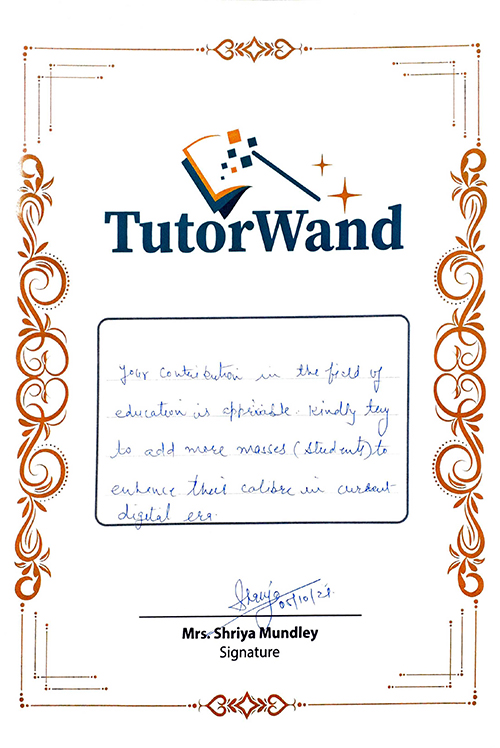 TutorWand
Your contribution in the field of
education is appriiable. Kindly try
to add more masses (students) to
enhance their calibre in current
digital era.
Shriya
05/10/21.
Mrs. Shriya Mundley
Signature